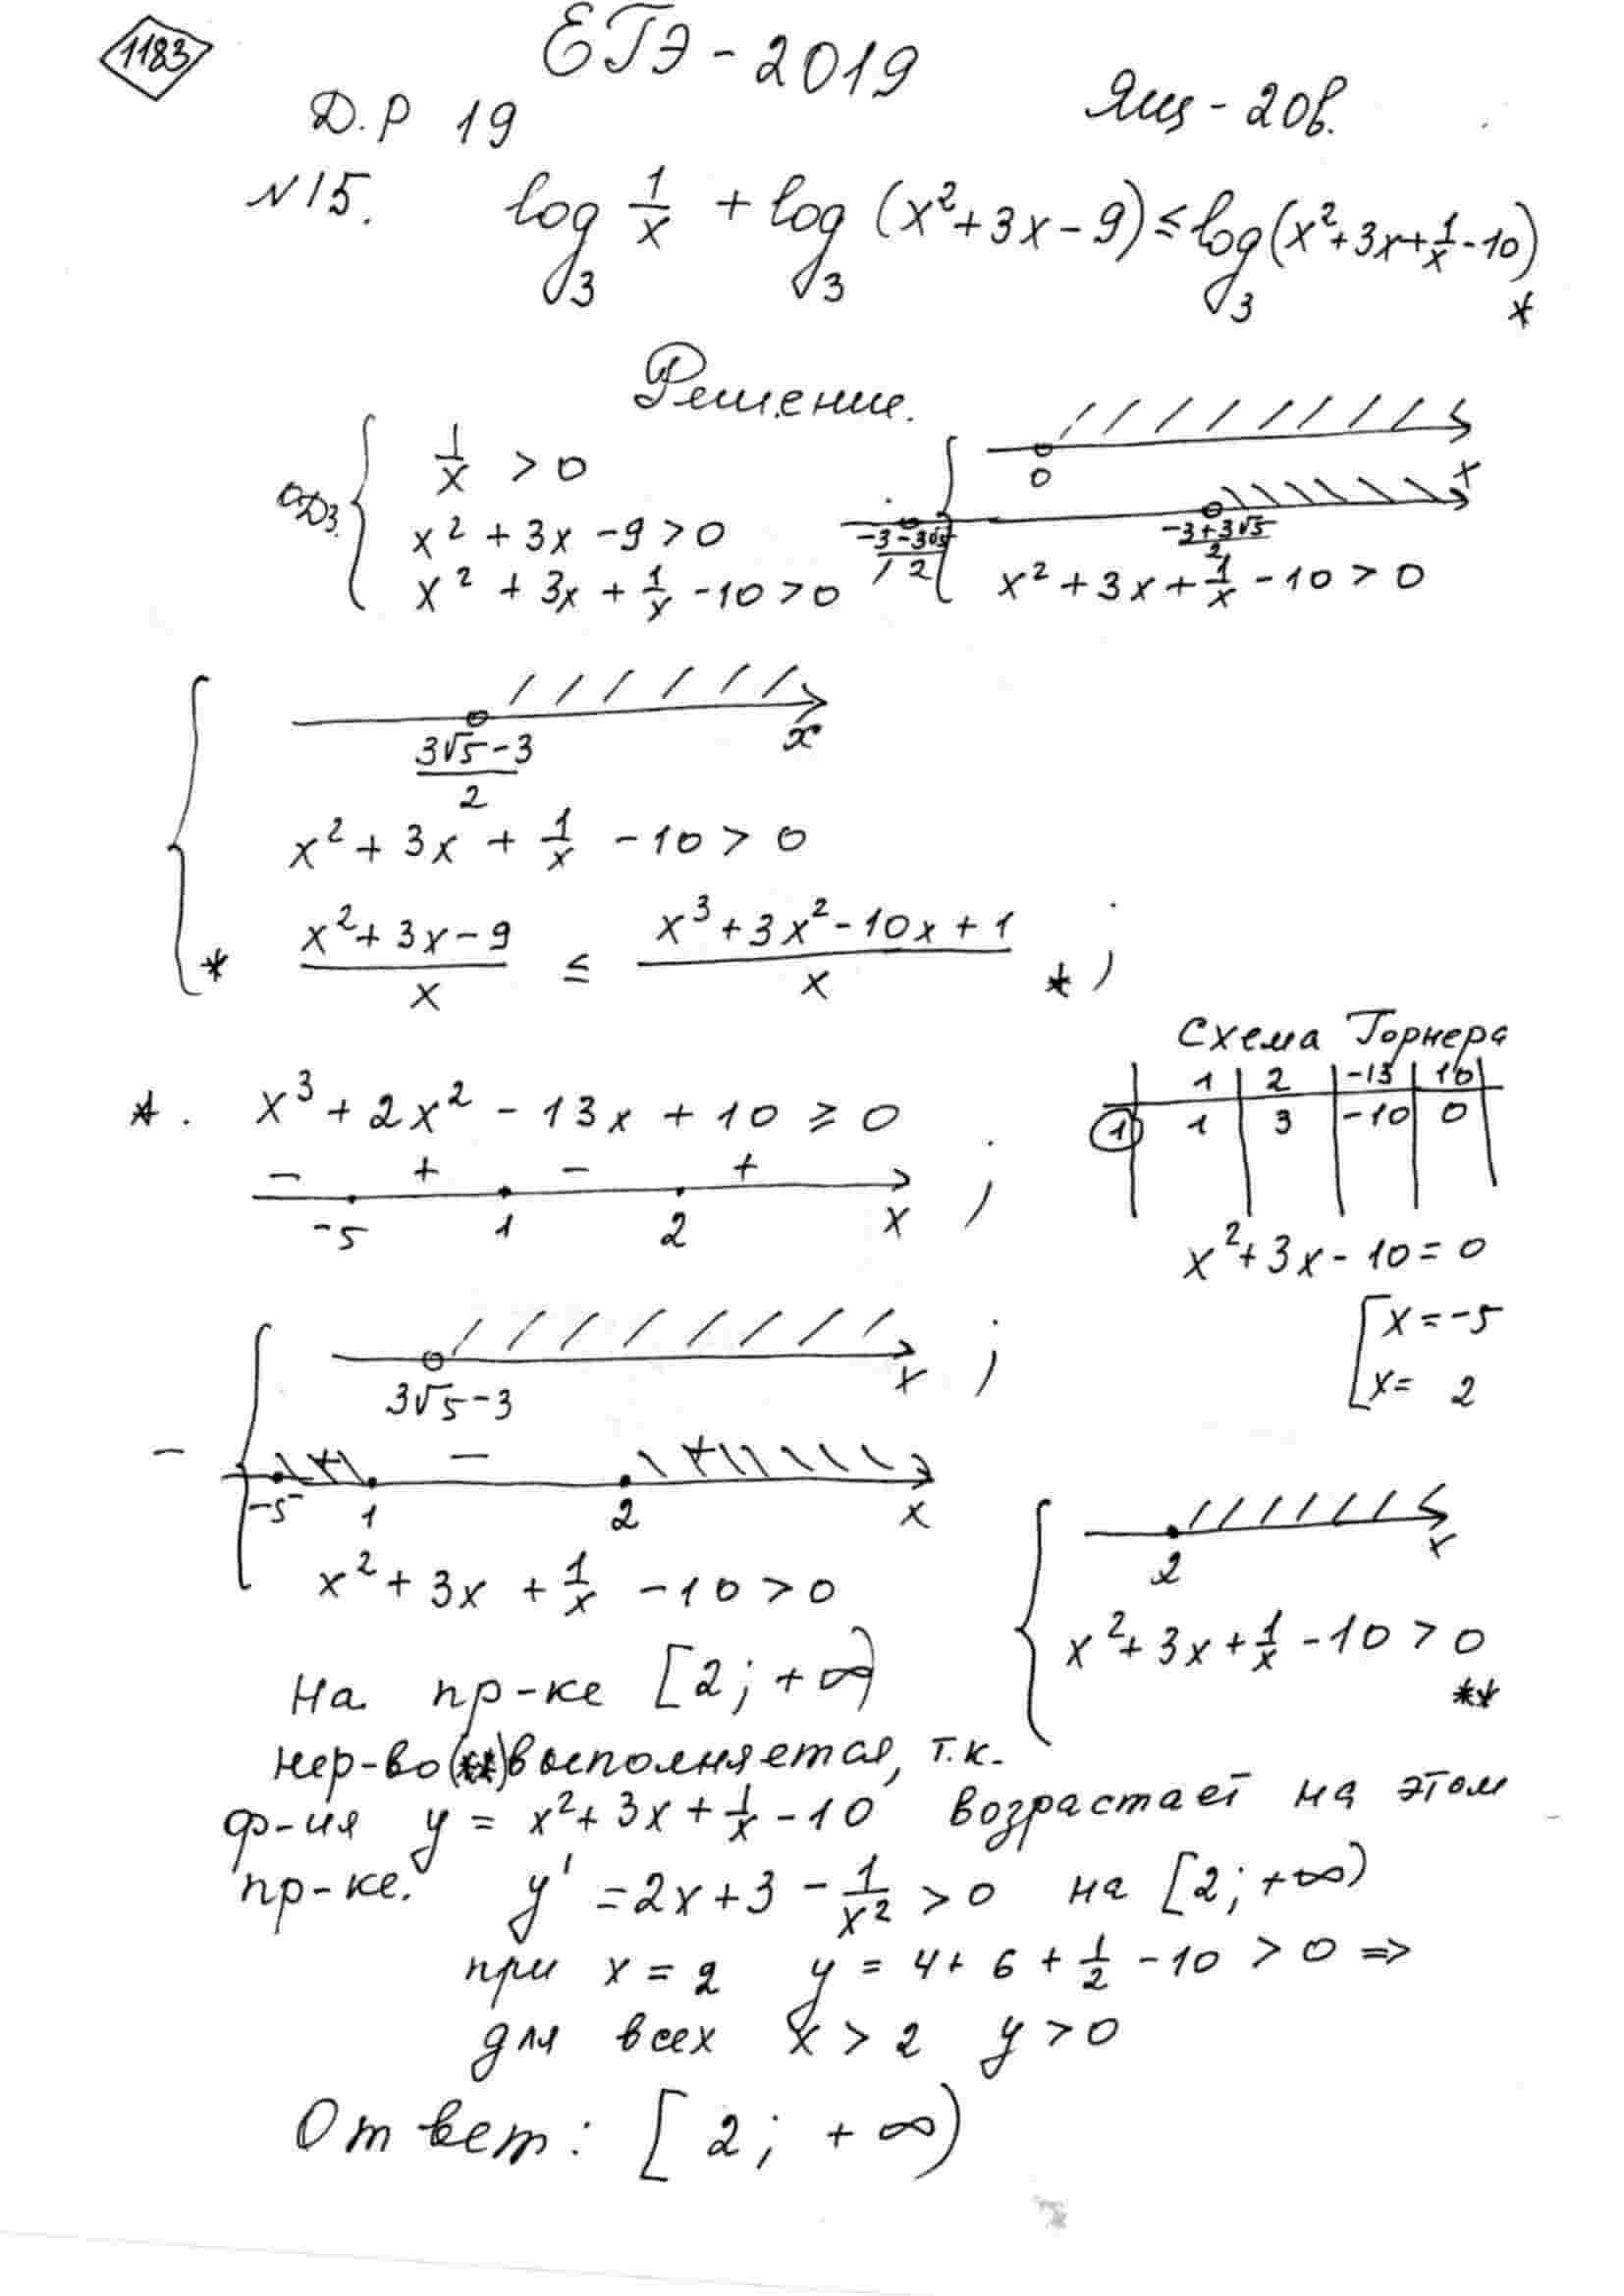 1183
ЕГЭ - 2019
Д.Р 19
Ящ - 20в.
N15. log₃ 1/x + log₃ (x² + 3x - 9) ≤ log₃ (x² + 3x + 1/x - 10) *
Решение.
ОДЗ. { 1/x > 0
x² + 3x - 9 > 0
x² + 3x + 1/x - 10 > 0
{ 0 x
(-3 - 3√5)/2 (-3 + 3√5)/2
x² + 3x + 1/x - 10 > 0
{ (3√5 - 3)/2 x
x² + 3x + 1/x - 10 > 0
* (x² + 3x - 9)/x ≤ (x³ + 3x² - 10x + 1)/x * ;
Схема Горнера
1 2 -13 10
1 1 3 -10 0
x² + 3x - 10 = 0
[ x = -5
x = 2
*. x³ + 2x² - 13x + 10 ≥ 0
- + - +
-5 1 2 x ;
{ 3√5 - 3 x ;
- + - +
-5 1 2 x
x² + 3x + 1/x - 10 > 0
{ 2 x
x² + 3x + 1/x - 10 > 0
**
На пр-ке [2; +∞)
нер-во (**) выполняется, т.к.
ф-ия y = x² + 3x + 1/x - 10 возрастает на этом
пр-ке. y' = 2x + 3 - 1/x² > 0 на [2; +∞)
при x = 2 y = 4 + 6 + 1/2 - 10 > 0 =>
для всех x > 2 y > 0
Ответ: [2; +∞)